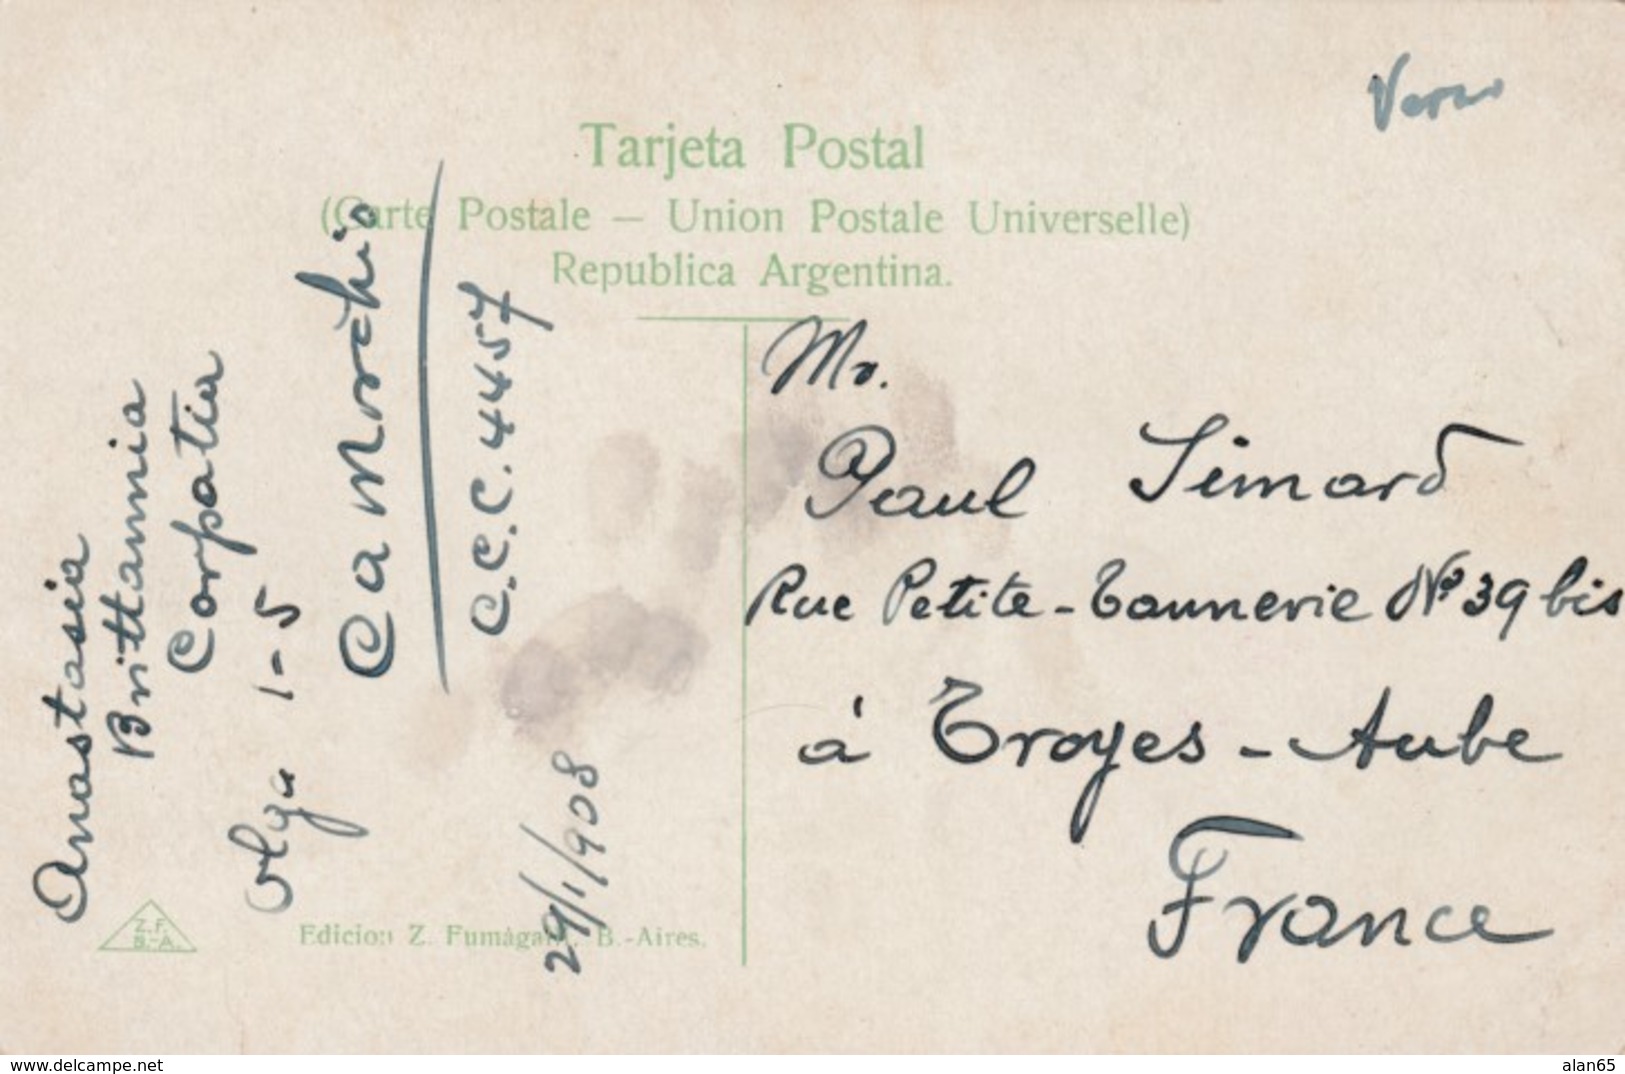 Verso
Tarjeta Postal
(Carte Postale — Union Postale Universelle)
Republica Argentina.
Anastasia
Brittannia
Corpatia
Olga 1-5
Ca Morchio
C.C.C. 4457
29/1/908
Mr.
Paul Simard
Rue Petite-Tannerie Nº 39 bis
à Troyes - Aube
France
Z.F.
B.-A.
Edicion Z. Fumagalli. B.-Aires.
www.delcampe.net
alan65